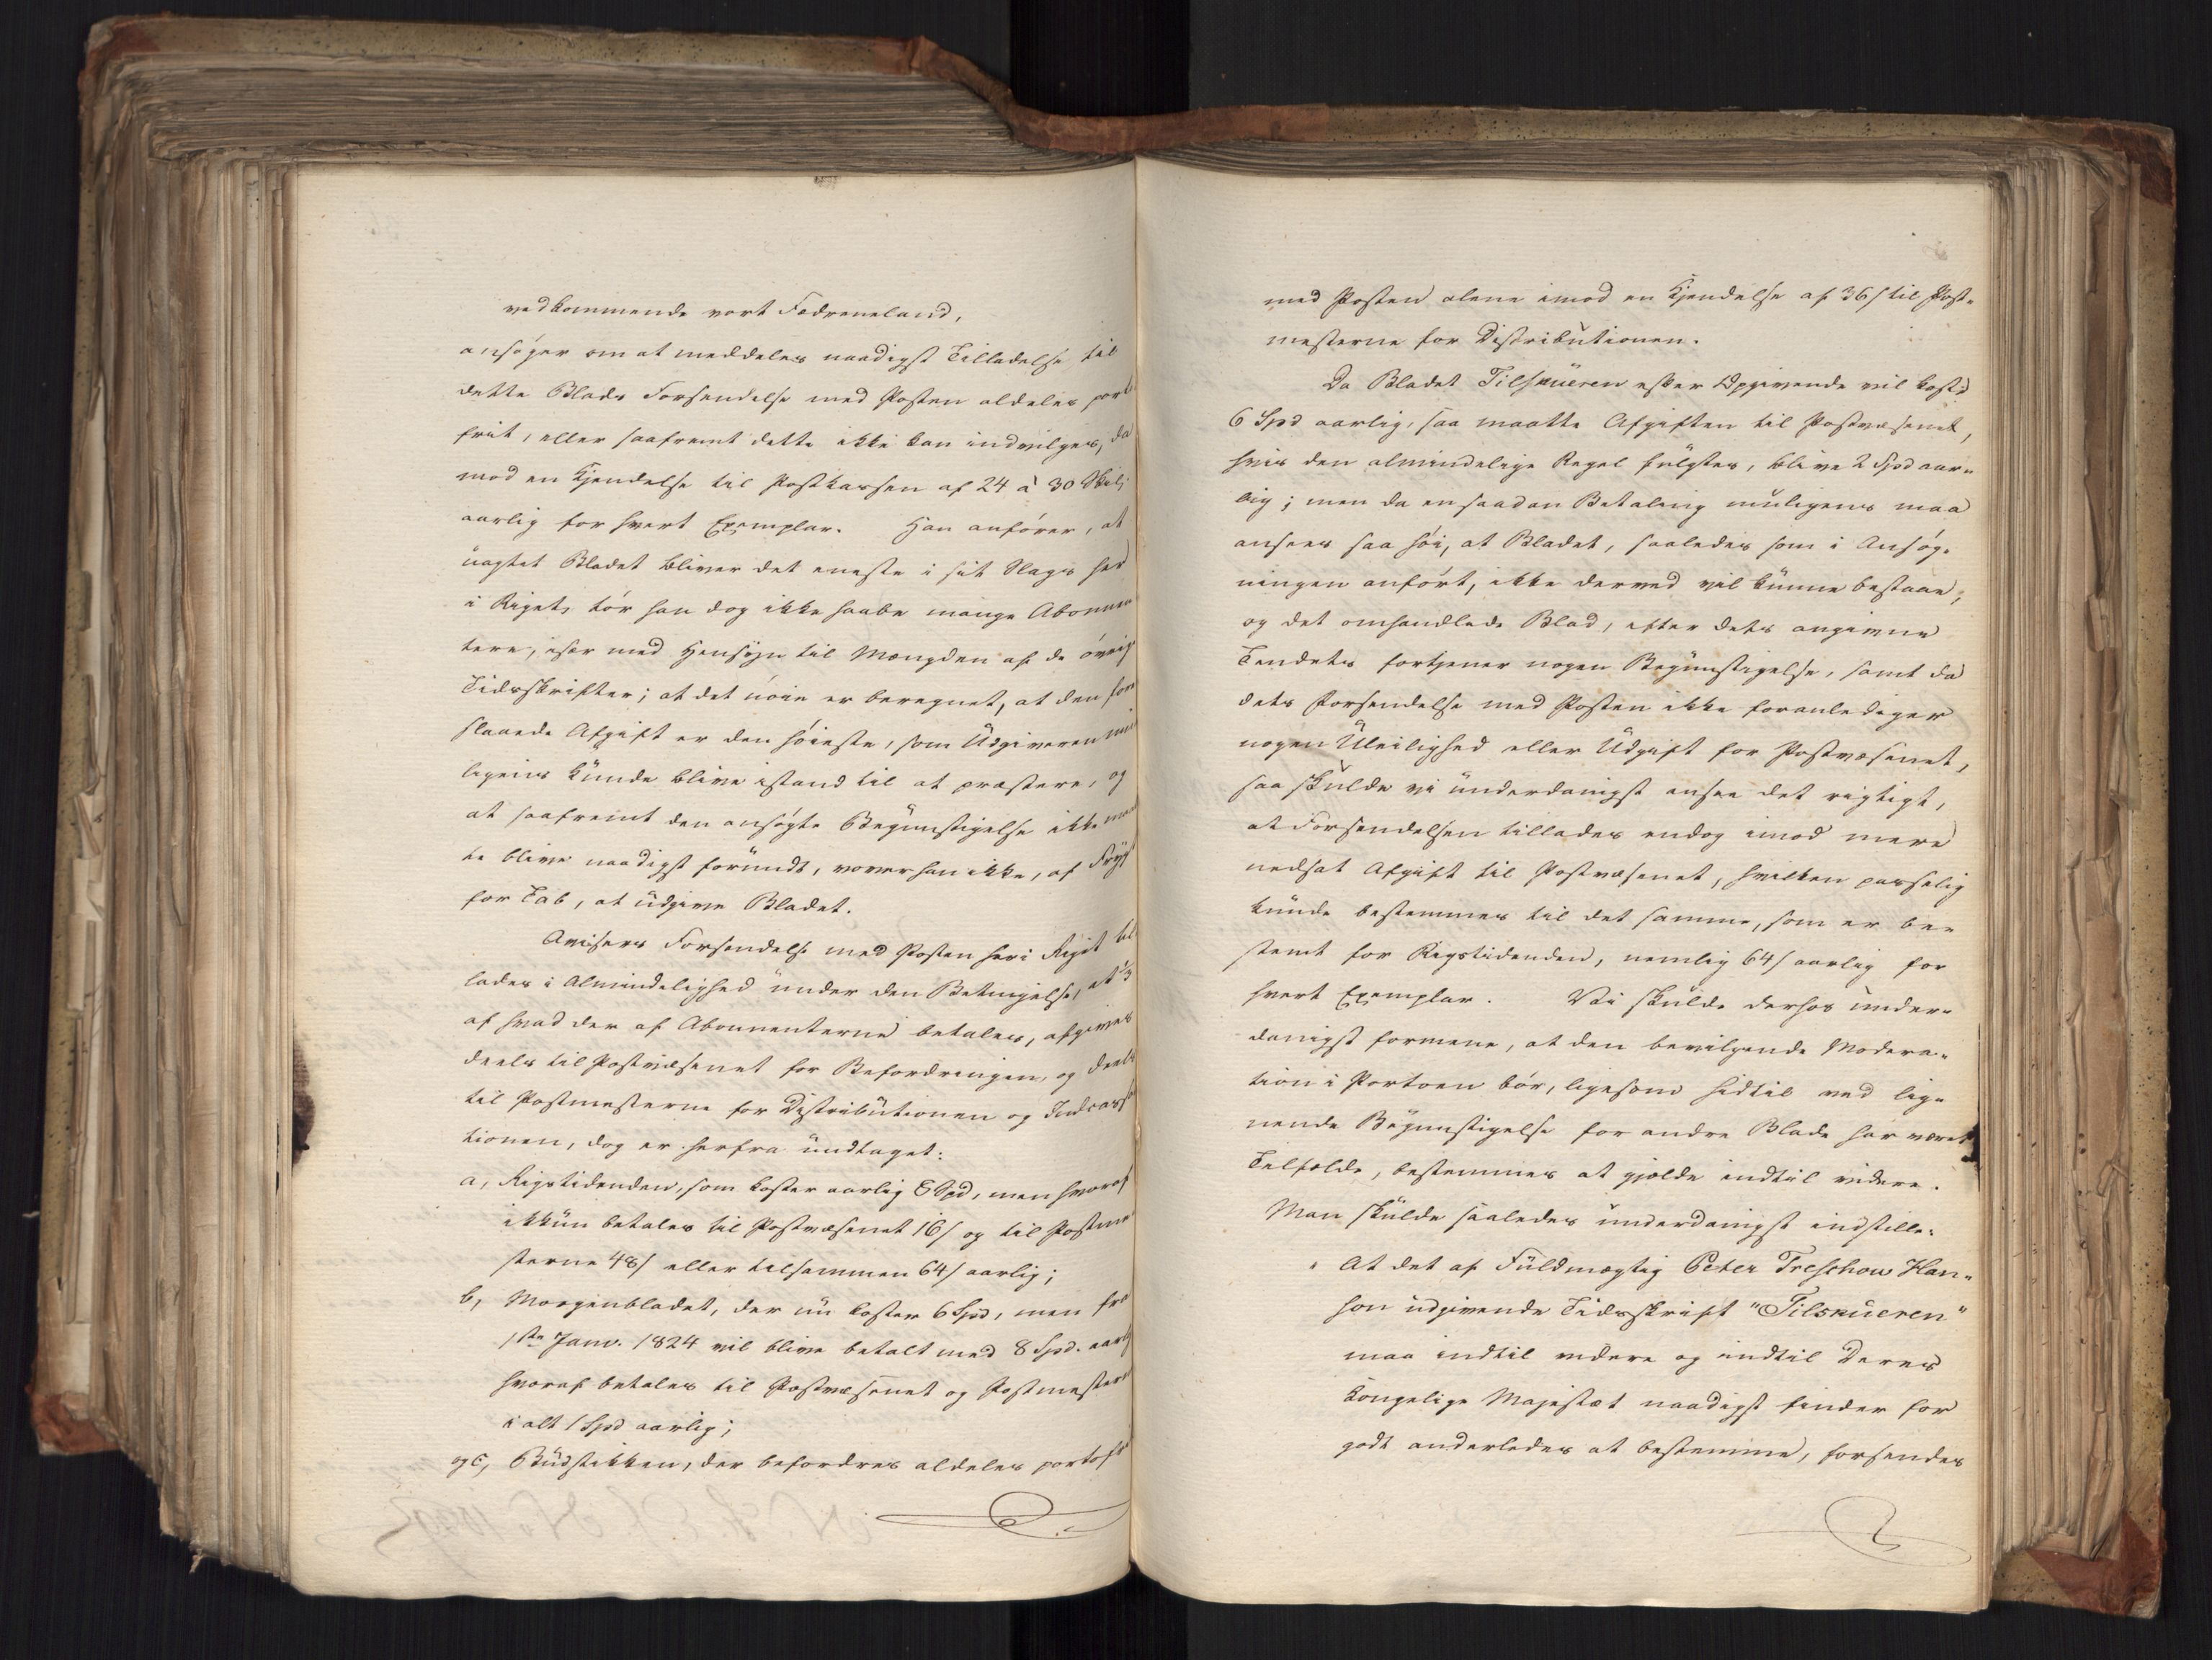 vedkommende vort Fædreneland,
ansøger om at meddeles naadigst Tilladelse til
dette Blads Forsendelse med Posten aldeles porto
friit, eller saafremt dette ikke kan indvilges, da
mod en Kjendelse til Postkassen af 24 à 30 Skil:
aarlig for hvert Exemplar. Han anfører, at
uagtet Bladet bliver det eneste i sit Slags her
i Riget, tør han dog ikke haabe mange Abonnen
tere, især med Hensyn til Mængden af de øvrige
Tidsskrifter; at det nøie er beregnet, at den fore
slaaede Afgift er den høieste, som Udgiveren mu
ligens kunde blive istand til at præstere, og
at saafremt den ansøgte Begunstigelse ikke maat
te blive naadigst forundt, vover han ikke, af Frygt
for Tab, at udgive Bladet.
Avisers Forsendelse med Posten her i Riget til
lades i Almindelighed under den Betingelse, at 1/3
af hvad der af Abonnenterne betales, afgives
deels til Postvæsenet for Befordringen, og deels
til Postmesterne for Distributionen og Indcassa
tionen, dog er herfra undtaget:
a, Rigstidenden, som koster aarlig 6 Spd, men hvoraf
ikkun betales til Postvæsenet 16/ og til Postme
sterne 48/ eller tilsammen 64/ aarlig;
b, Morgenbladet, der nu koster 6 Spd, men fra
1ste Janv. 1824 vil blive betalt med 8 Spd. aarlig
hvoraf betales til Postvæsenet og Postmesterne
i alt 1 Spd aarlig;
og c, Budstikken, der befordres aldeles portofri
med Posten alene imod en Kjendelse af 36/ til Post-
mesterne for Distributionen.
Da Bladet Tilskueren efter Opgivende vil koste
6 Spd aarlig, saa maatte Afgiften til Postvæsenet,
hvis den almindelige Regel fulgtes, blive 2 Spd aar-
lig; men da en saadan Betaling muligens maa
ansees saa høi, at Bladet, saaledes som i Ansøg-
ningen anført, ikke derved vil kunne bestaae;
og det omhandlede Blad, efter dets angivne
Tendets fortjener nogen Begunstigelse, samt da
dets Forsendelse med Posten ikke foranlediger
nogen Uleilighed eller Udgift for Postvæsenet,
saa skulde vi underdanigst ansee det rigtigt,
at Forsendelsen tillades endog imod mere
nedsat Afgift til Postvæsenet, hvilken passelig
kunde bestemmes til det samme, som er be-
stemt for Rigstidenden, nemlig 64/ aarlig for
hvert Exemplar. Vi skulde derhos under-
danigst formene, at den bevilgende Modera-
tion i Portoen bør, ligesom hidtil ved lig-
nende Begunstigelse for andre Blade har været
Tilfælde, bestemmes at gjælde indtil videre.
Man skulde saaledes underdanigst indstille:
At det af Fuldmægtig Peter Treschow Han-
son udgivende Tidsskrift "Tilskueren"
maa indtil videre og indtil Deres
Kongelige Majestæt naadigst finder for
godt anderledes at bestemme, forsendes